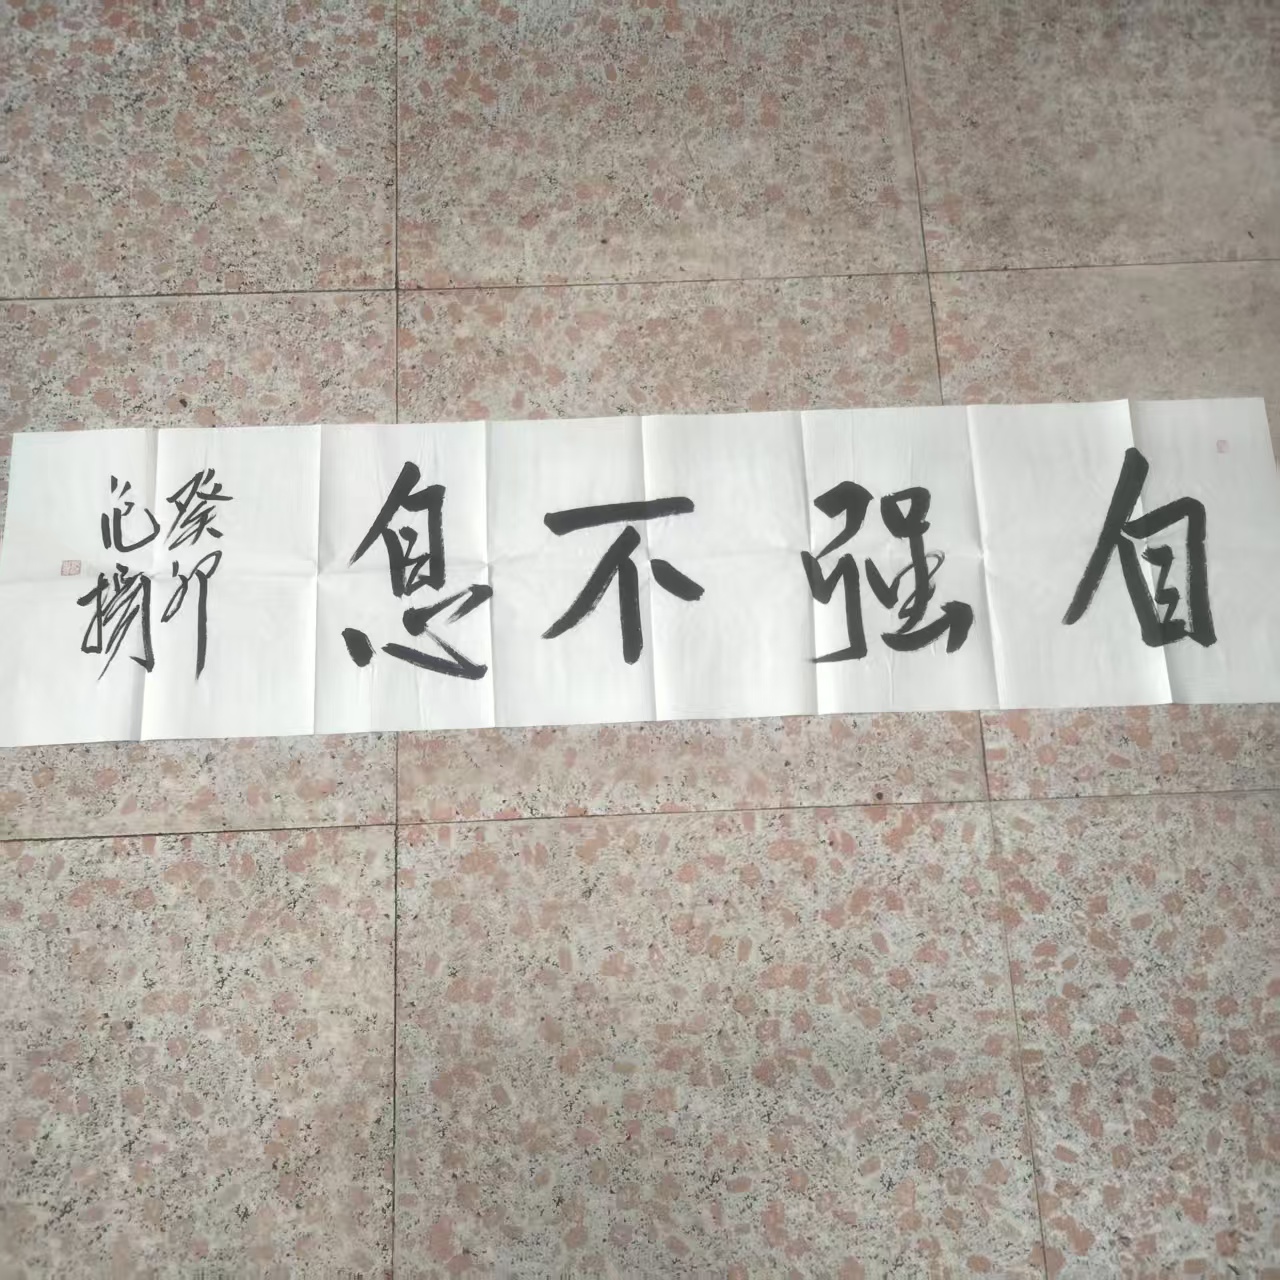 自强不息
癸卯
范扬